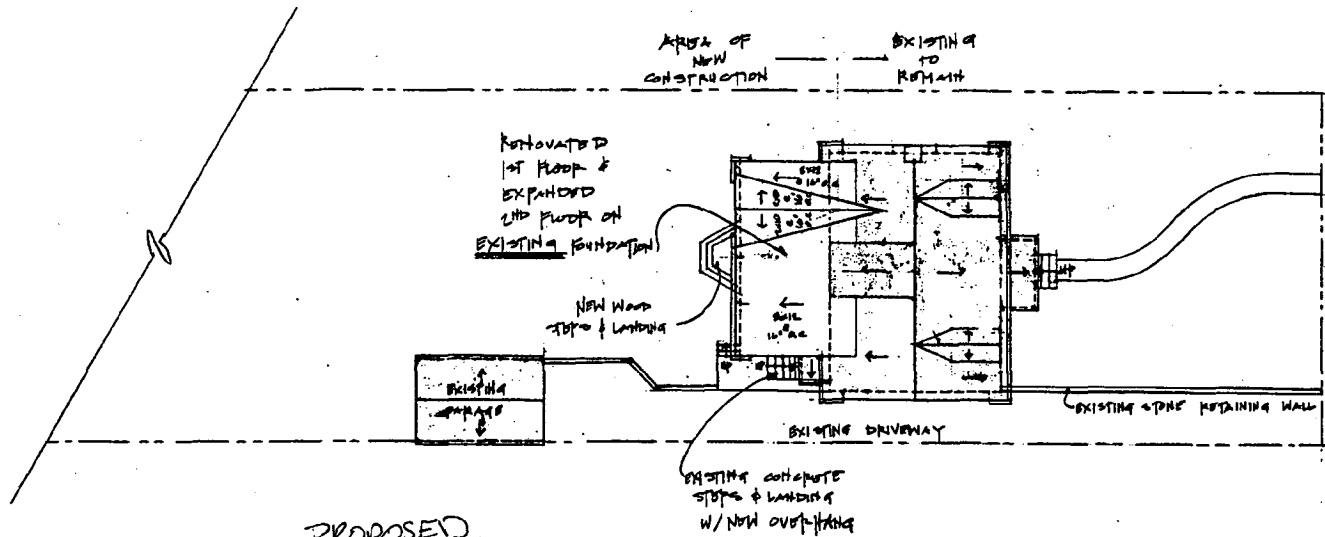 AREA OF
NEW
CONSTRUCTION
EXISTING
TO
REMAIN
RENOVATED
1ST FLOOR &
EXPANDED
2ND FLOOR ON
EXISTING FOUNDATION
NEW WOOD
STEPS & LANDING
16" O.C.
2x12
16" O.C.
UP
EXISTING
GARAGE
EXISTING STONE RETAINING WALL
EXISTING DRIVEWAY
EXISTING CONCRETE
STEPS & LANDING
W/ NEW OVERHANG
PROPOSED